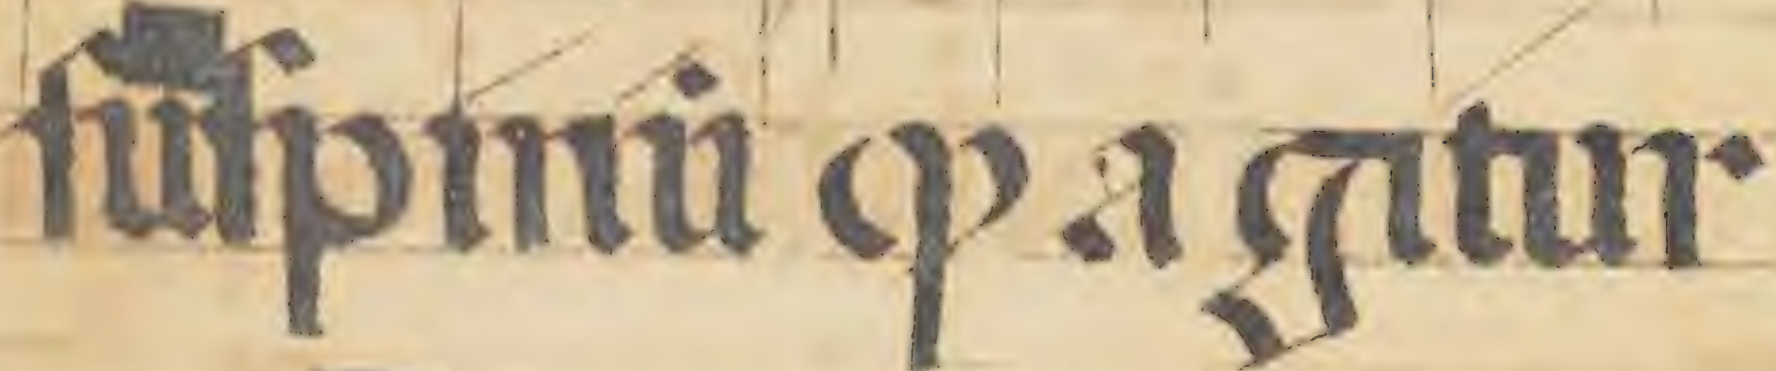 ſuſpiriū ꝙ agitur